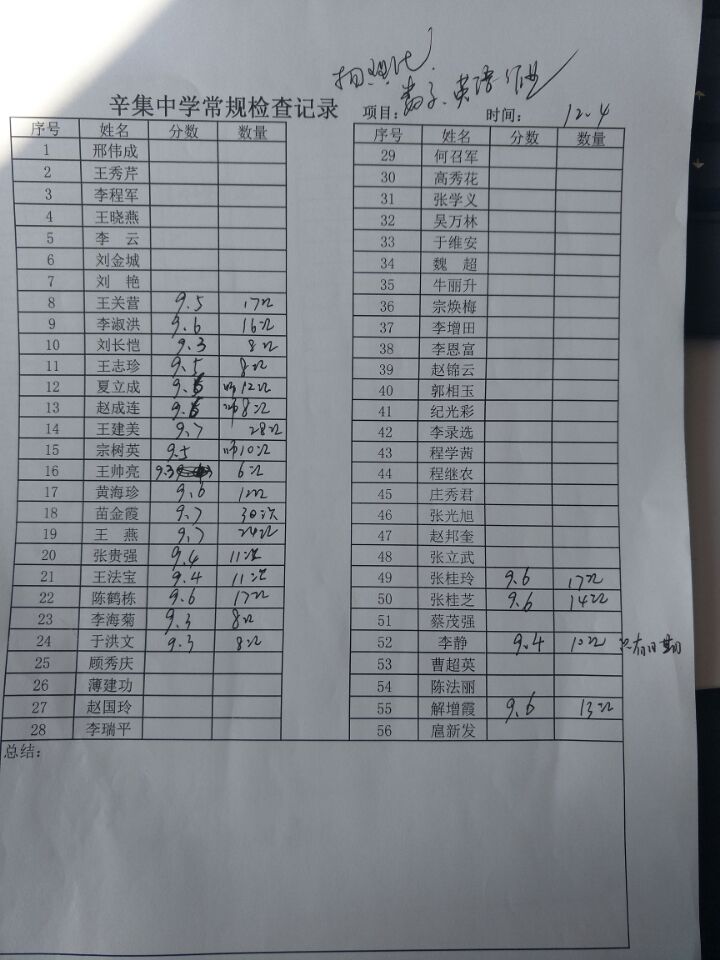 数学、英语作业
辛集中学常规检查记录 项目: 时间: 12.4
序号 姓名 分数 数量
1 邢伟成
2 王秀芹
3 李程军
4 王晓燕
5 李 云
6 刘金城
7 刘 艳
8 王关营 9.5 17次
9 李淑洪 9.6 16次
10 刘长恺 9.3 8次
11 王志珍 9.5 8次
12 夏立成 12次
13 赵成连 8次
14 王建美 9.7 28次
15 宗树英 9.5 10次
16 王帅亮 9.3 6次
17 黄海珍 9.6
18 苗金霞 9.7 30次
19 王 燕 9.7 24次
20 张贵强 9.4 11次
21 王法宝 9.4 11次
22 陈鹤栋 9.6 17次
23 李海菊 9.3 8次
24 于洪文 9.3 8次
25 顾秀庆
26 薄建功
27 赵国玲
28 李瑞平
序号 姓名 分数 数量
29 何召军
30 高秀花
31 张学义
32 吴万林
33 于维安
34 魏 超
35 牛丽升
36 宗焕梅
37 李增田
38 李恩富
39 赵锦云
40 郭相玉
41 纪光彩
42 李录选
43 程学茜
44 程继农
45 庄秀君
46 张光旭
47 赵邦奎
48 张立武
49 张桂玲 9.6 17次
50 张桂芝 9.6 14次
51 蔡茂强
52 李静 9.4 10次
53 曹超英
54 陈法丽
55 解增霞 9.6 13次
56 扈新发
总结: